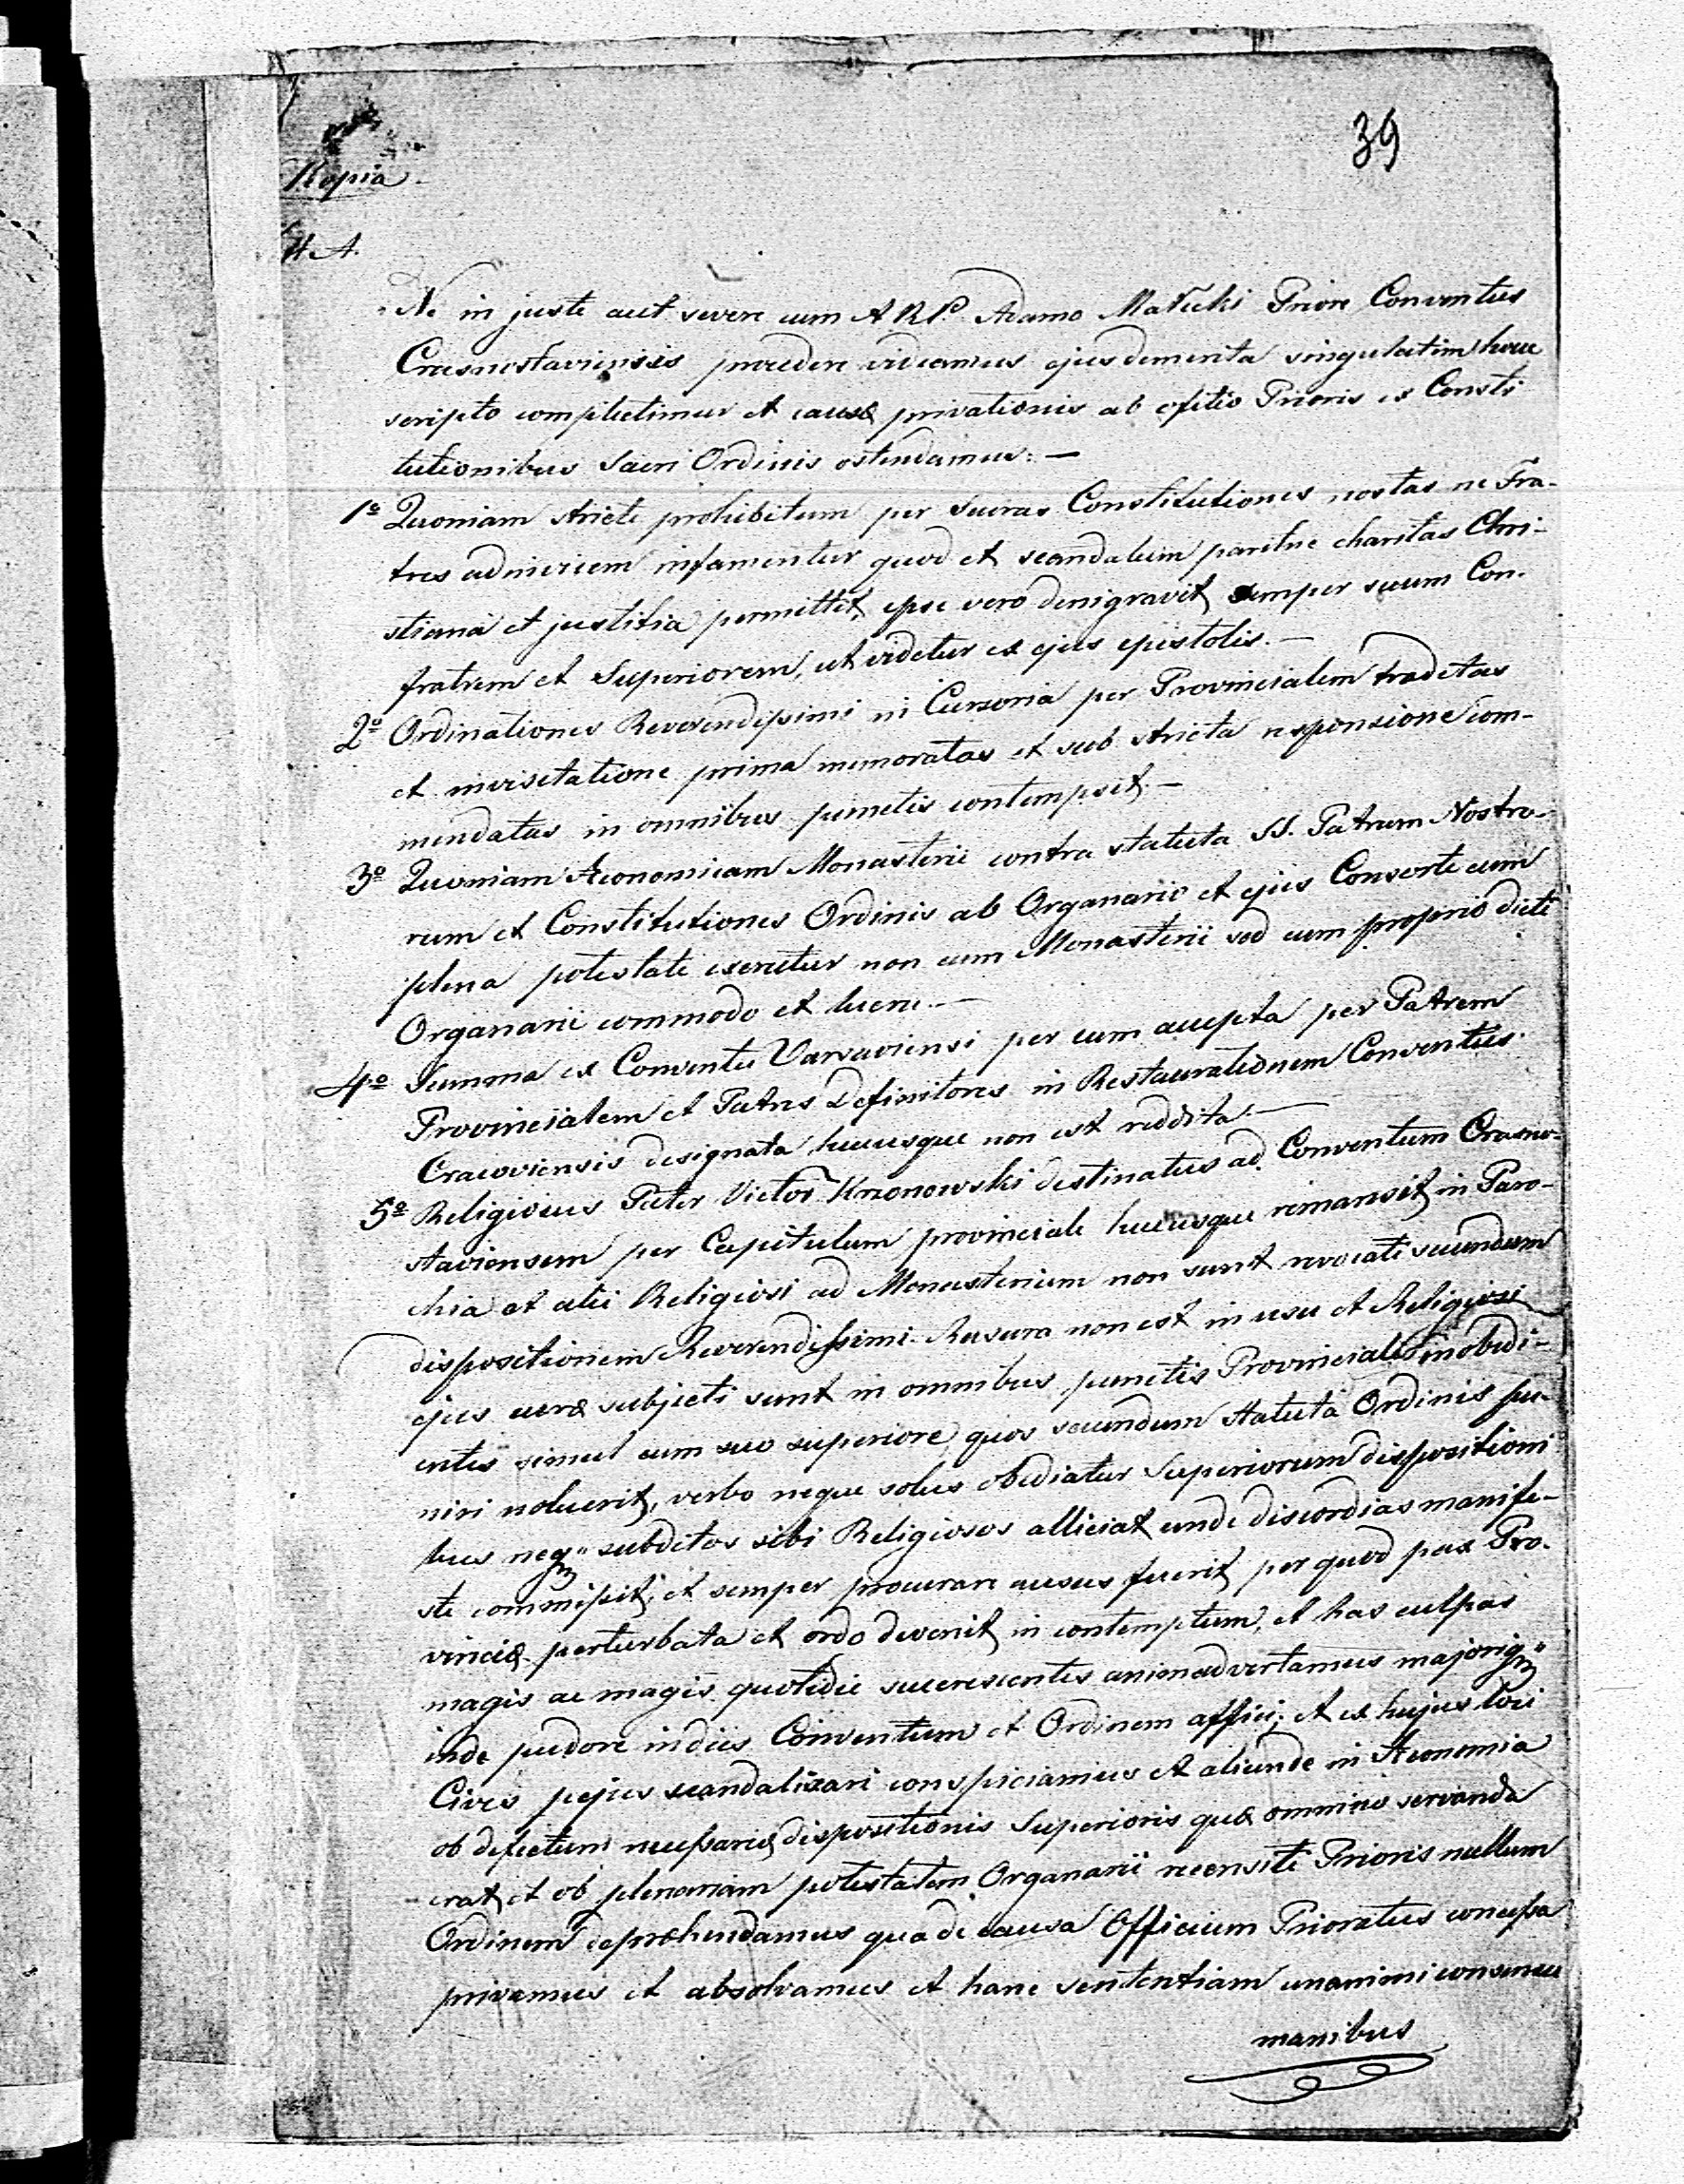 39
Kopia.
Ne in juste aut severe cum A R P. Adamo Matuki Priore Conventus
Crasnostaviensis procedere videamus ejus demerita singulatim huic
scripto complectimur et causæ privationis ab offitio Prioris ex Consti
tutionibus Sacri Ordinis ostendamus: —
1º Quoniam stricte prohibitum per Sacras Constitutiones nostas ne Fra-
tres adinvicem infamentur quod et scandalum paritne charitas Chri-
stiana et justitia permittit, ipse vero denigravit semper suum Con-
fratrem et Superiorem, ut videtur ex ejus epistolis. —
2º Ordinationes Reverendissimi in Cursoria per Provincialem traditas
et in visitatione prima memoratas et sub stricta responsione com-
mendatas in omnibus punctis contempsit. —
3º Quoniam Æconomicam Monasterii contra statuta SS. Patrum Nostro-
rum et Constitutiones Ordinis ab Organario et ejus Consorte cum
plena potestate exercetur non cum Monasterii sed cum proprio dicti
Organarii commodo et lucru. —
4º Summa ex Conventu Varsaviensi per eum accepta per Patrem
Provincialem et Patres Definitores in Restaurationem Conventus
Cracoviensis designata hucusque non est reddita. —
5º Religiosus Pater Victor Krzonowski destinatus ad Conventum Crasno-
staviensem per Capitulum provinciale hucusque remansit in Paro-
chia et alii Religiosi ad Monasterium non sunt revocati secundum
dispositionem Reverendissimi. Rasura non est in usu et Religiosi
ejus curæ subjecti sunt in omnibus punctis Provinciales inobedi-
entes simul cum suo superiore, quos secundum statuta Ordinis pu-
niri noluerit, verbo neque solus obediatur Superiorum disposition
bus neq subditos sibi Religiosos alliciat unde discordias manife-
ste commisit, et semper procurare ausus fuerit per quod pax Pro-
vinciæ perturbata et ordo devenit in contemptum, et has culpas
magis ac magis quotidie succrescentes animadvertamus majoriq
inde pudore indies Conventum et Ordinem affici; et ex hujus loci
Cives pejus scandalizari conspiciamus et aliunde in Æconomia
ob defectum necessariæ dispositionis Superioris quæ omnino servanda
erat et ob plenariam potestatem Organarii recensiti Prioris nullum
Ordinem deprehendamus qua de causa Officium Prioratus concessa
privamus et absolvamus et hanc sententiam unanimi consensu
manibus